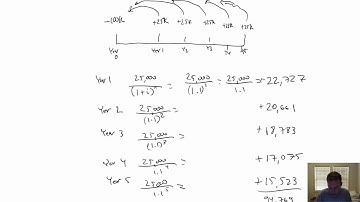 -100K +25K +25K +25K +25K +25K
Year 0 Year 1 Y2 Y3 Y4 Y5
Year 1 25,000/(1+i)^1 = 25,000/(1.1)^1 = 25,000/1.1 = +22,727
Year 2 25,000/(1.1)^2 = +20,661
Year 3 25,000/(1.1)^3 = +18,783
Year 4 25,000/1.1^4 = +17,075
Year 5 25,000/1.1^5 = +15,523
94,769